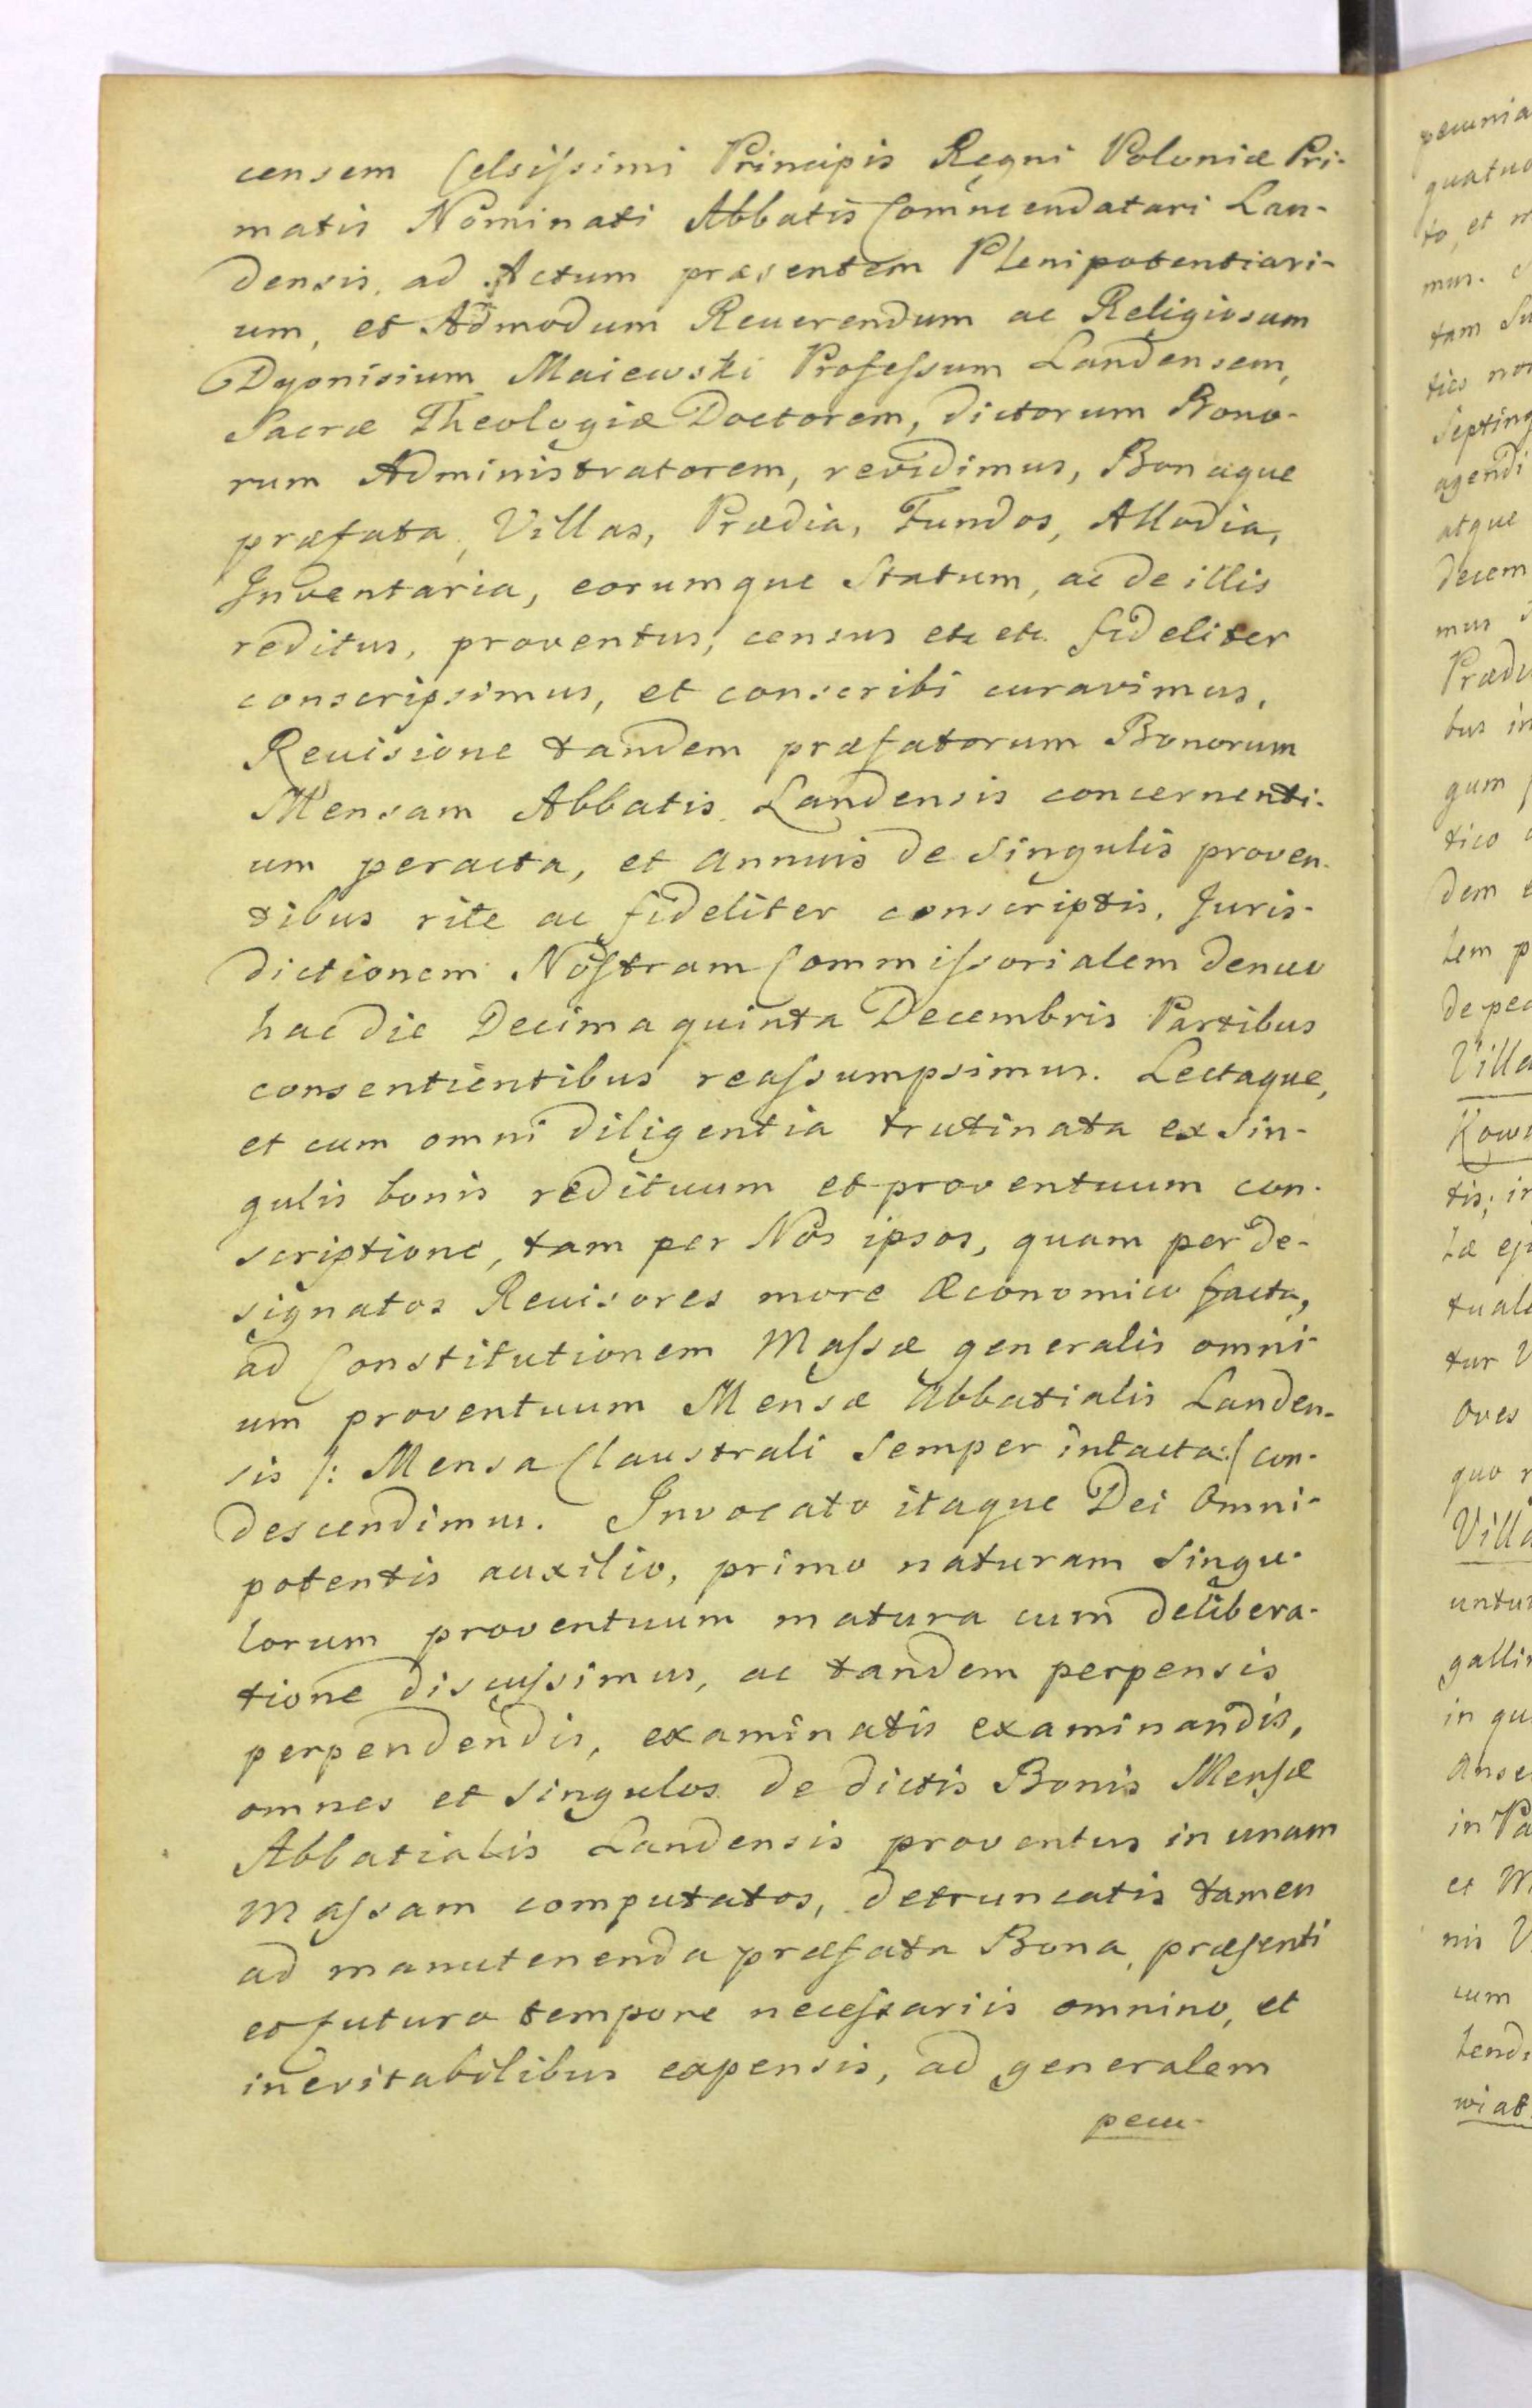 censem Celsissimi Principis Regni Poloniæ Pri-
matis Nominati Abbatis Commendatari Lan-
densis, ad Actum præsentem Plenipotentiari-
um, et Admodum Reuerendum ac Religiosum
Dyonisium Maiewski Professum Landensem,
Sacræ Theologiæ Doctorem, dictorum Bono-
rum Administratorem, revidimus, Bonaque
præfata, Villas, Prædia, Fundos, Allodia,
Inventaria, eorumque Statum, ac de illis
reditus, proventus, census etc etc. fideliter
conscripsimus, et conscribi curavimus,
Reuisione tandem præfatorum Bonorum
Mensam Abbatis Landensis concernenti-
um peracta, et annuis de singulis proven-
tibus rite ac fideliter conscriptis, Juris-
dictionem Nostram Commissorialem denuo
hac die Decima quinta Decembris Partibus
consentientibus reassumpsimus. Lectaque,
et cum omni diligentia trutinata ex sin-
gulis bonis redituum et proventuum con-
scriptione, tam per Nos ipsos, quam per de-
signatos Reuisores more Œconomico facta,
ad Constitutionem Massæ generalis omni-
um proventuum Mensæ Abbatialis Landen-
sis /: Mensa Claustrali semper intacta :/ con-
descendimus. Invocato itaque Dei Omni-
potentis auxilio, primo naturam singu-
lorum proventuum matura cum delibera-
tione discussimus, ac tandem perpensis
perpendendis, examinatis examinandis,
omnes et singulos de dictis Bonis Mensæ
Abbatialis Landensis proventus in unam
Massam computatos, detruncatis tamen
ad manutenenda præfata Bona, præsenti
et futuro tempore necessariis omnino, et
inevitabilibus expensis, ad generalem
pecu-
pecunia
quatuo
to, et
mus.
tam
ties non
septing
agendi
atque
decem
mus
Prædi
bus in
gum
tico
dem
tem p
de pec
Villa
Kow
tis, in
læ ej
tuale
tur V
Oves
quo
Villa
untur
galli
in qu
Anse
in Pa
et M
nis V
cum
tend
wiat